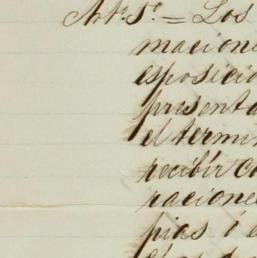 Art.º 5.º = Los
macione
esposicio
presenta
el termin
recibir co
raciones
pias ó e